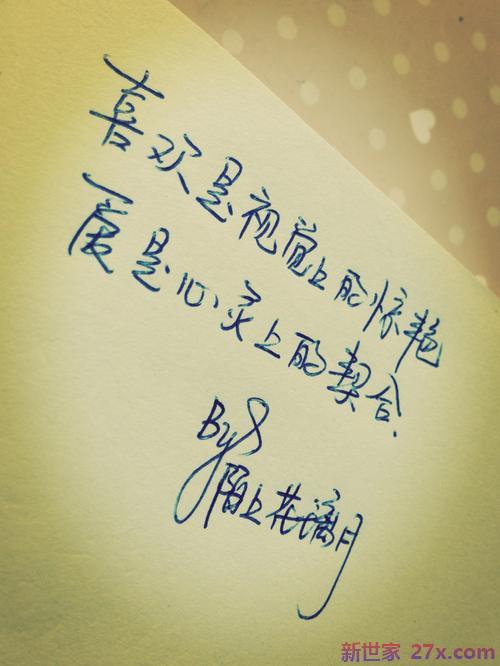 喜欢是视觉上的惊艳
爱是心灵上的契合.
By
陌上花漓月
新世家 27x.com